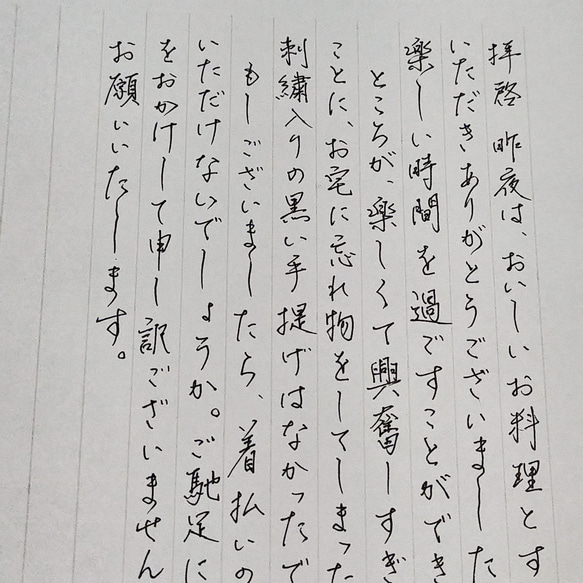 拝啓 昨夜は、おいしいお料理とす
いただきありがとうございました
楽しい時間を過ですことができ
ところが、楽しくて興奮しすぎ
ことに、お宅に忘れ物をしてしまった
刺繍入りの黒い手提げはなかったで
もしございましたら、着払いの
いただけないでしょうか。ご馳足に
をおかけして申し訳ございません
お願いいたします。